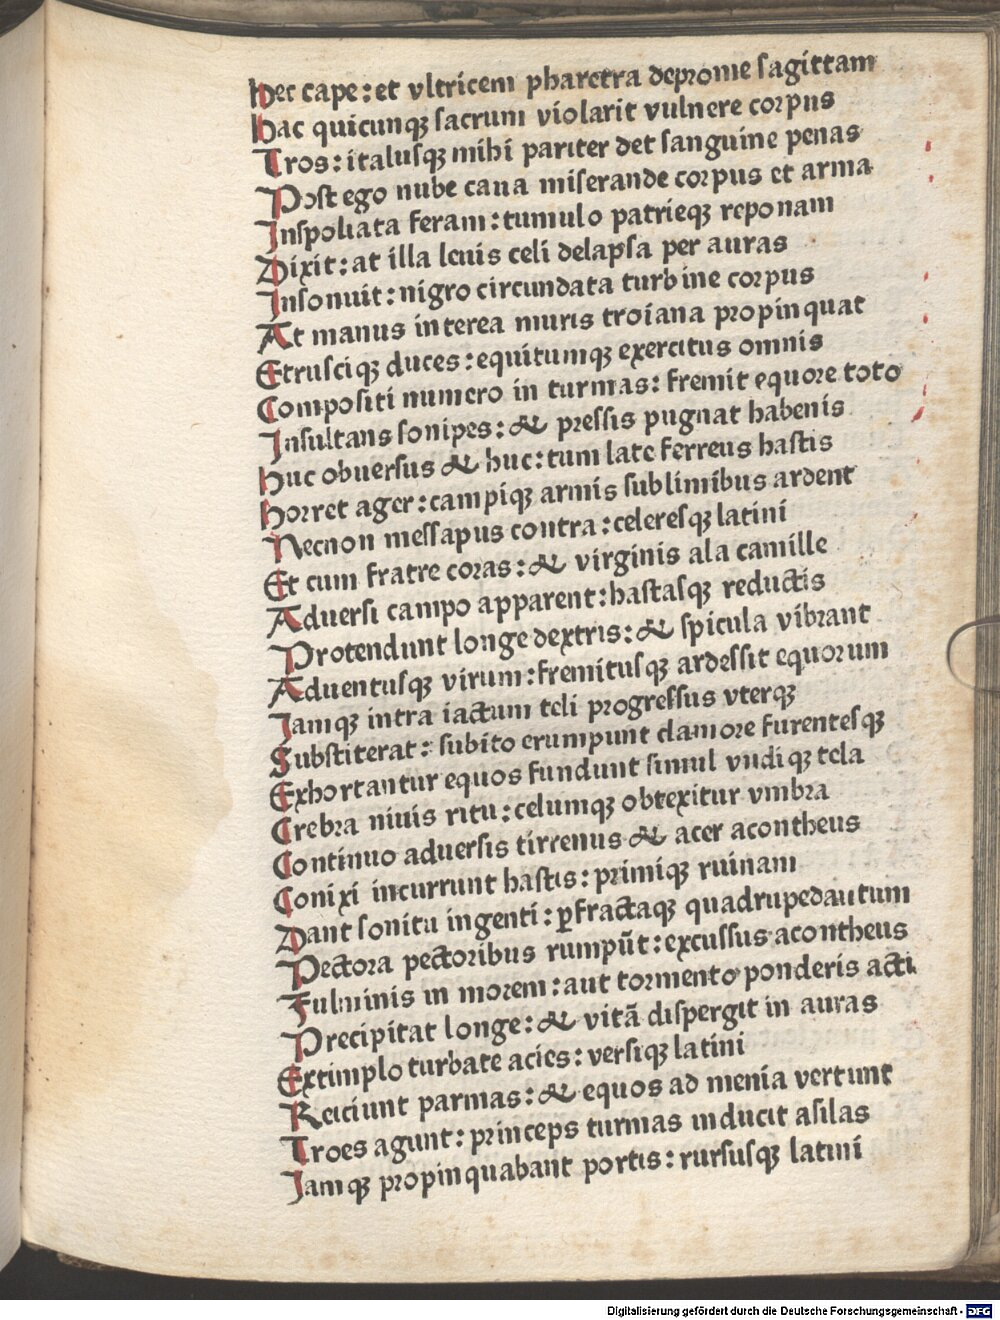 Hec cape: et vltricem pharetra deprome sagittam
Hac quicunqꝫ sacrum violarit vulnere corpus
Tros: italusqꝫ mihi pariter det sanguine penas
Post ego nube caua miserande corpus et arma
Inspoliata feram: tumulo patrieqꝫ reponam
Dixit: at illa leuis celi delapsa per auras
Insonuit: nigro circundata turbine corpus
At manus interea muris troiana propinquat
Etrusciqꝫ duces: equitumqꝫ exercitus omnis
Compositi numero in turmas: fremit equore toto
Insultans sonipes: & pressis pugnat habenis
Huc obuersus & huc: tum late ferreus hastis
Horret ager: campiqꝫ armis sublimibus ardent
Necnon messapus contra: celeresqꝫ latini
Et cum fratre coras: & virginis ala camille
Aduersi campo apparent: hastasqꝫ reductis
Protendunt longe dextris: & spicula vibrant
Aduentusqꝫ virum: fremitusqꝫ ardessit equorum
Iamqꝫ intra iactum teli progressus vterqꝫ
Substiterat: subito erumpunt clamore furentesqꝫ
Exhortantur equos fundunt simul vndiqꝫ tela
Crebra niuis ritu: celumqꝫ obtexitur vmbra
Continuo aduersis tirrenus & acer acontheus
Conixi incurrunt hastis: primiqꝫ ruinam
Dant sonitu ingenti: ꝑfractaqꝫ quadrupedautum
Pectora pectoribus rumpūt: excussus acontheus
Fulminis in morem: aut tormento ponderis acti
Precipitat longe: & vitā dispergit in auras
Extimplo turbate acies: versiqꝫ latini
Reiciunt parmas: & equos ad menia vertunt
Troes agunt: princeps turmas inducit asilas
Iamqꝫ propinquabant portis: rursusqꝫ latini
Digitalisierung gefördert durch die Deutsche Forschungsgemeinschaft - DFG